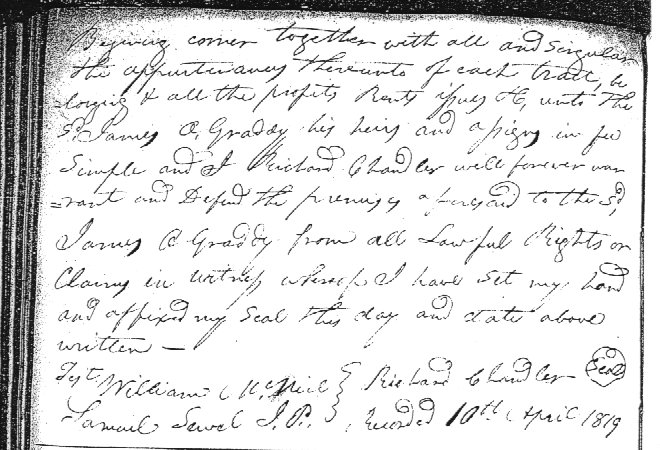 Begining corner together with all and Singular
the appurtenances thereunto of each tract, be
=longing & all the profits Rents issues &c, unto the
sd. James O, Graddy his heirs and assigns in fee
Simple and I Richard Chandler will forever war
=rant and Defend the premises aforesaid to the sd,
James O Graddy from all Lawful Rights or
Claims in witness whereof I have set my hand
and affixed my Seal this day and date above
written —
Test William McNeil } Richard Chandler Seal
Samuel Sewel J. P. } Recorded 10th April 1819